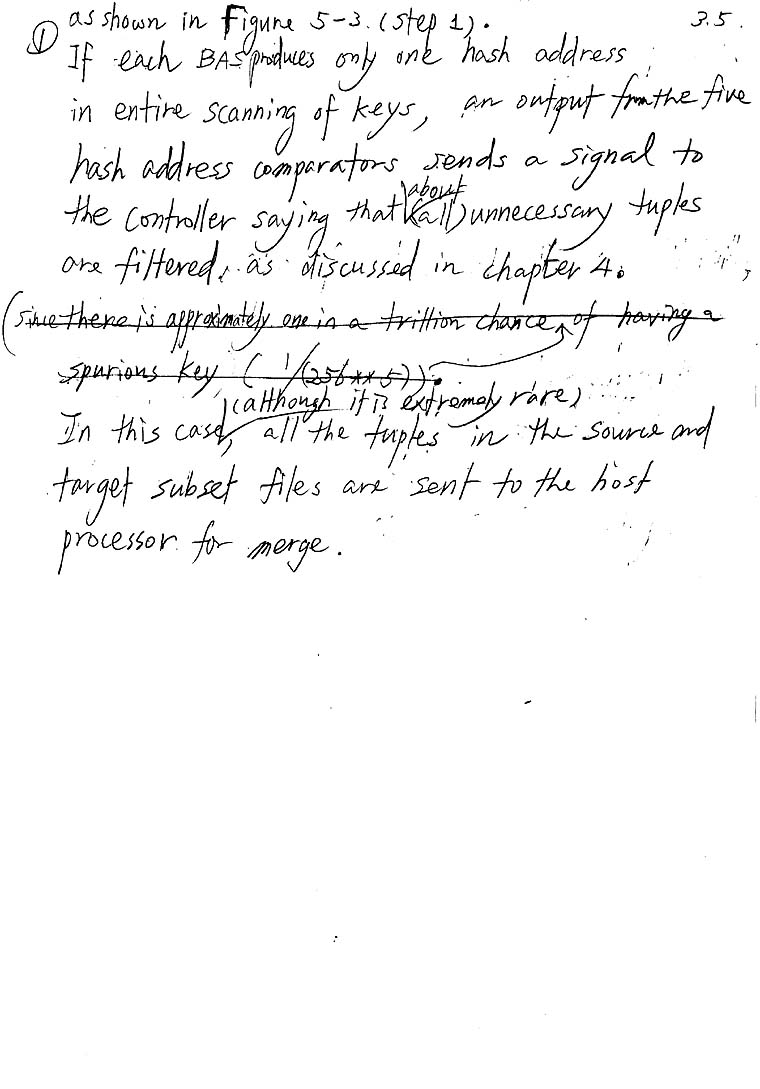 ① as shown in Figure 5-3. (step 1). 3.5.
If each BAS produces only one hash address
in entire scanning of keys, an output from the five
hash address comparators sends a signal to
about
the controller saying that (all) unnecessary tuples
are filtered, as discussed in chapter 4.
(Since there is approximately one in a trillion chance of having a
spurious key (1/(256**5)).
(although it is extremely rare)
In this case, all the tuples in the source and
target subset files are sent to the host
processor for merge.